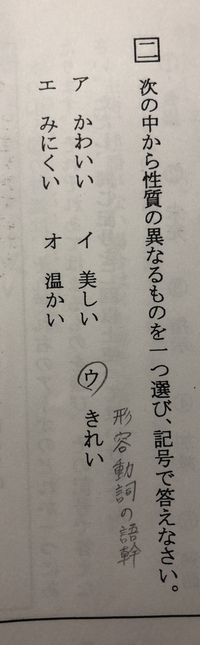 二 次の中から性質の異なるものを一つ選び、記号で答えなさい。
形容動詞の語幹
ア かわいい イ 美しい ウ きれい
エ みにくい オ 温かい